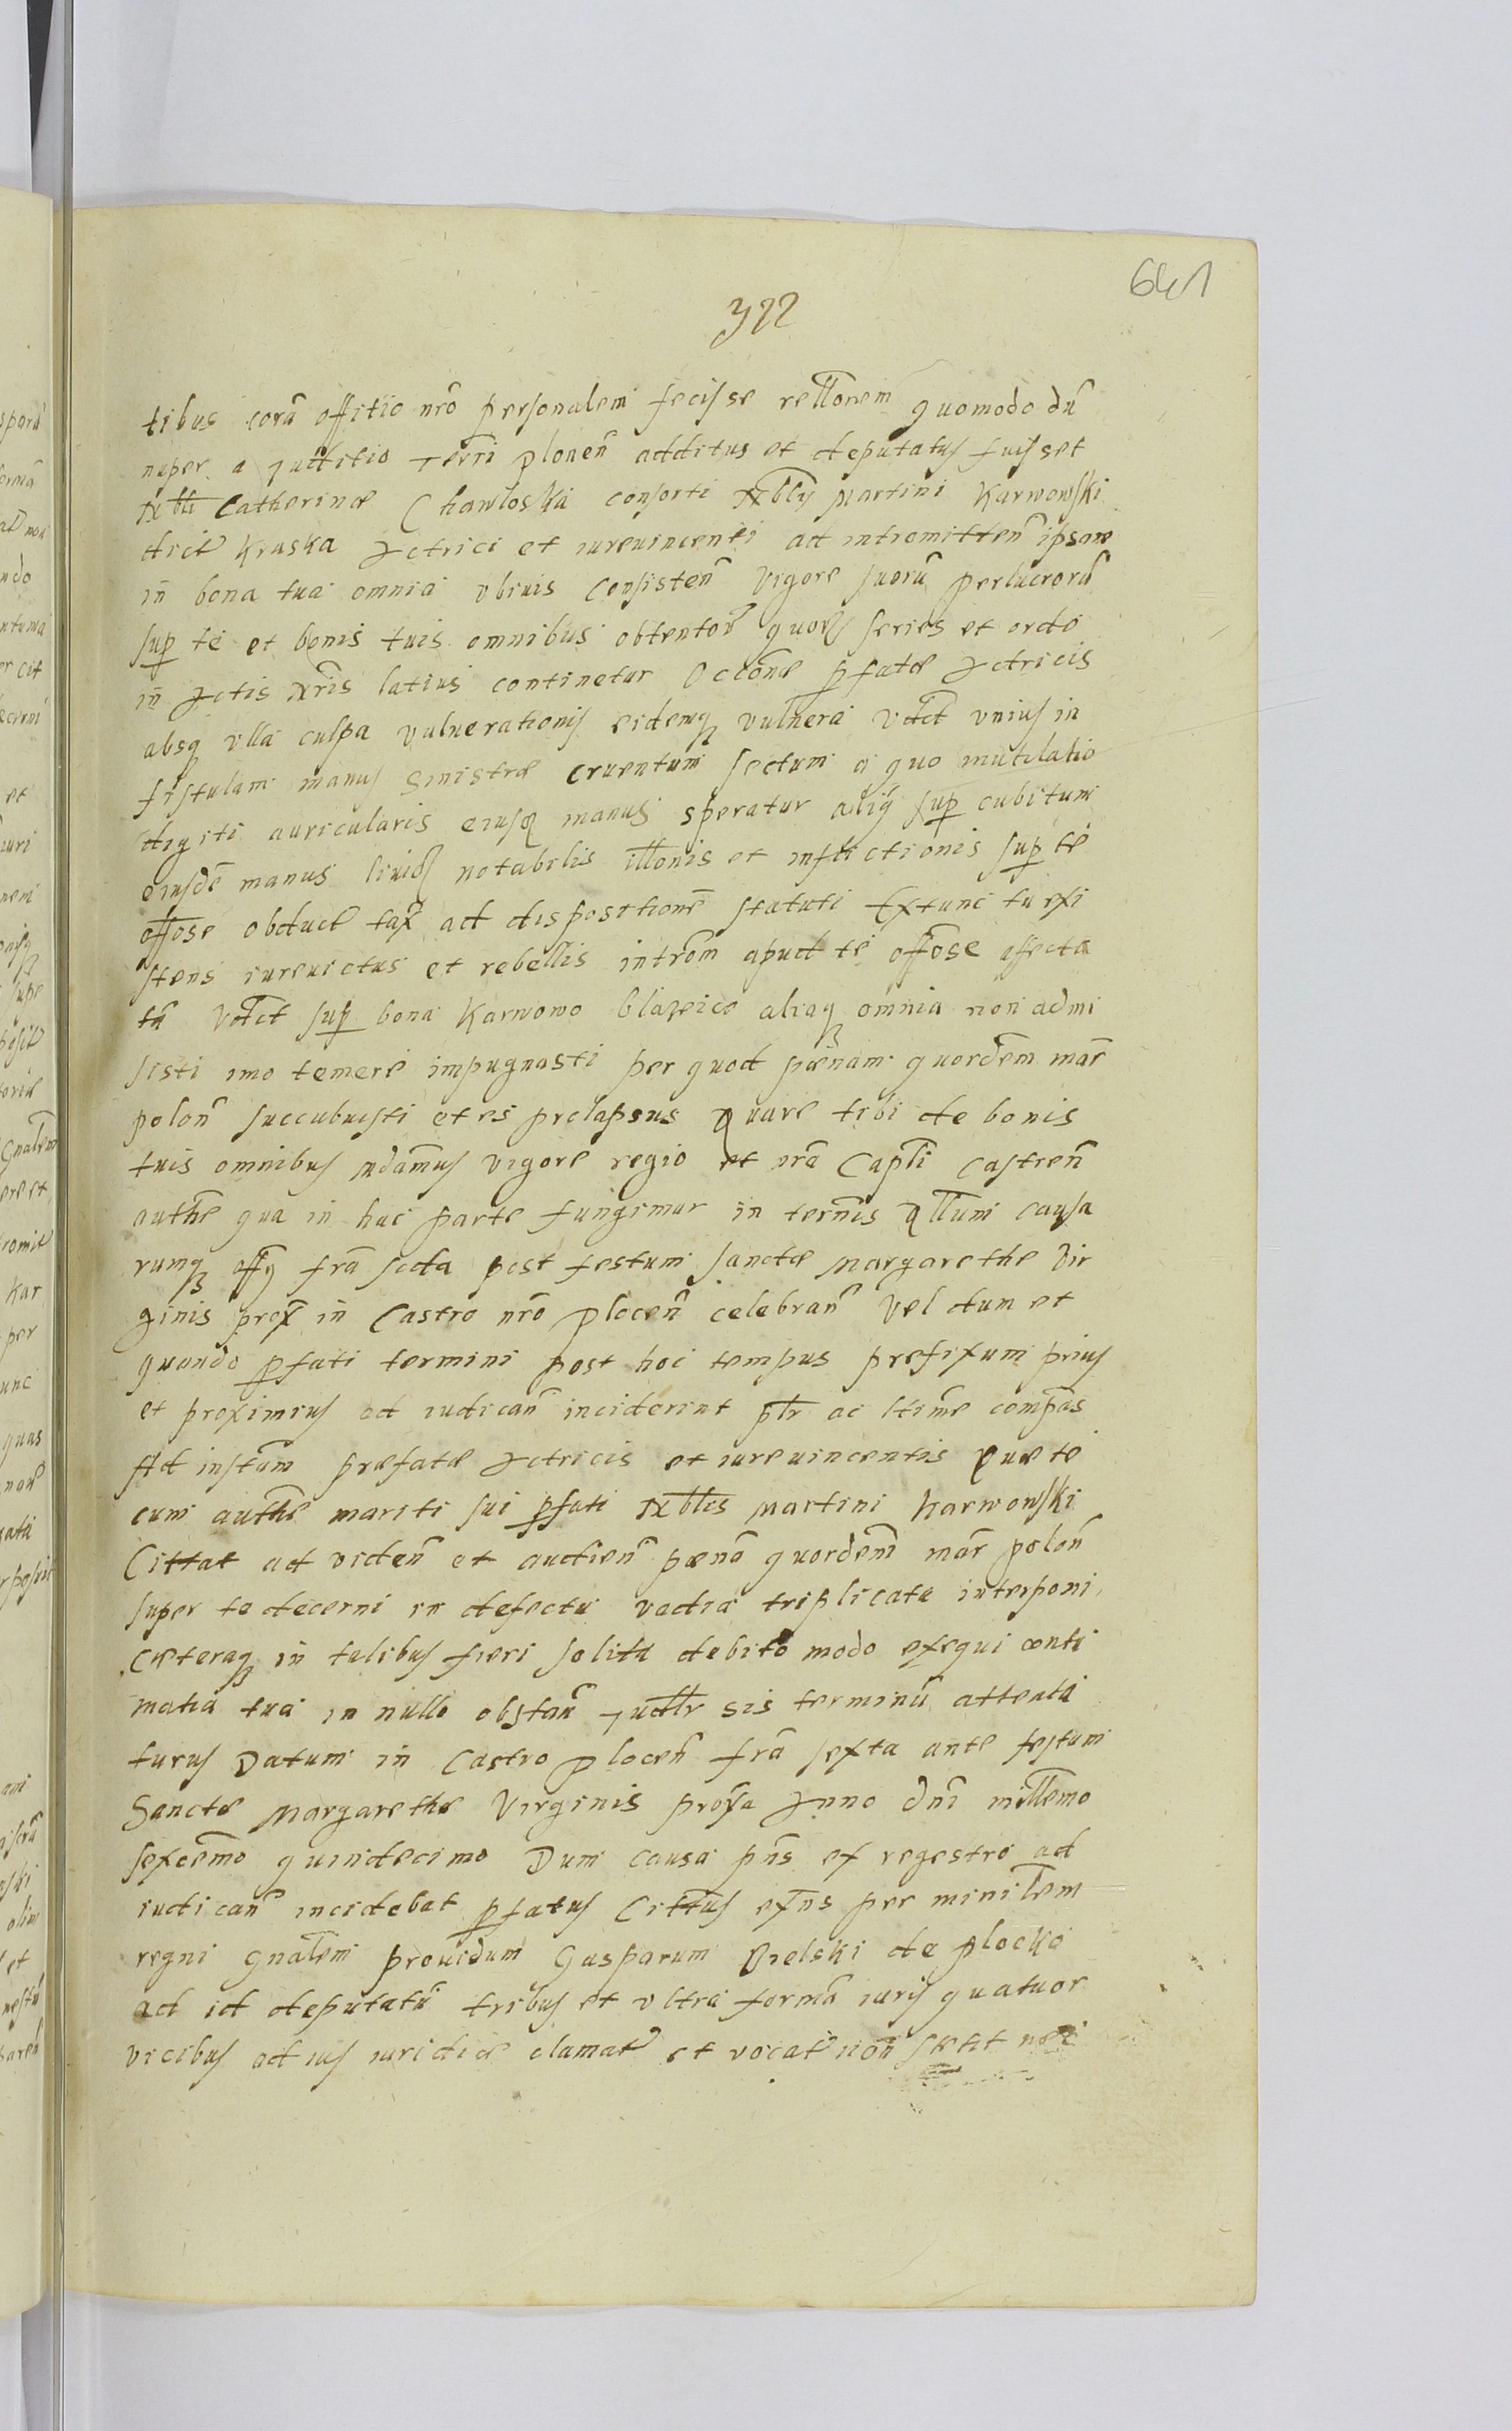 641
322
tibus corā offitio nr̄o personalem fecisse rell̄onem quomodo dū
nuper a Juditio Terr̄i Plonen̄ additus et deputatus fuisset
Nbli Catherinæ Chawloska consorti Nblis Martini Karwowski
dict Kraska Actrici et iureuincenti ad intromitten̄ ipsam
in bona tua omnia vbiuis Consisten̄ Vigore suorū perlucrorū
sup te et bonis tuis omnibus obtentor quor series et ordo
in Actis nr̄is latius continetur Occōne p̄fatæ Actricis
absq vlla culpa vulnerationis eidemq vulnera vdct vnius in
fistulam manus Sinistræ cruentum sectum a quo mutilatio
digiti auricularis eiusd manus speratur alÿ sup cubitum
eiusdē manus liuid notabilis illonis et inflictionis sup te
offose obduct tax ad dispositionē statuti Extunc tu exi
stens iureuictus et rebellis intrōm apud te offose affecta
tā Vtdct sup bona Karwowo Blazeico aliaq omnia non admi
sisti imo temere impugnasti per quod pænam quordēm mar̄
polon̄ succubuisti et es prolapsus Quare tibi de bonis
tuis omnibus Mdāmus vigore regio et nr̄a Capl̄i Castren̄
auth̄e qua in hac parte fungimur in ter̄nis Qllum causa
rumq offÿ fr̄a secda post festum sanctæ Margarethe Vir
ginis prox̄ in Castro nr̄o Plocen̄ celebran̄ Vel dum et
quando p̄fati termini post hoc tempus prefixum prius
et proximius ad iudican̄ inciderint pl̄r ac ltime compās
Ad instām præfatæ Actricis et iureuincentis Quæ te
cum auth̄e mariti sui p̄fati Nblis Martini Karwowski
Cittat ad viden̄ et audien̄ pænā quordēm mar̄ polon̄
super te decerni in defectu vadia triplicata interponi
Cæteraq in talibus fieri solita debito modo exequi contu
matia tua in nullo obstan̄ Judlr sis terminū attenta
turus Datum in Castro Plocen̄ fr̄a sexta ante festum
Sanctæ Margarethæ Virginis prox̄a Anno dn̄i millēmo
sexcēmo quindecimo Dum causa pn̄s ex regestro ad
iudican̄ incidebat p̄fatus Cittus exn̄s per minilem
regni Gnalem prouidum Gasparum Bielski de Plocko
ad id deputatū tribus et vltra formā iuris quatuor
vicibus ad ius iuridice clamat et vocat non stetit nec